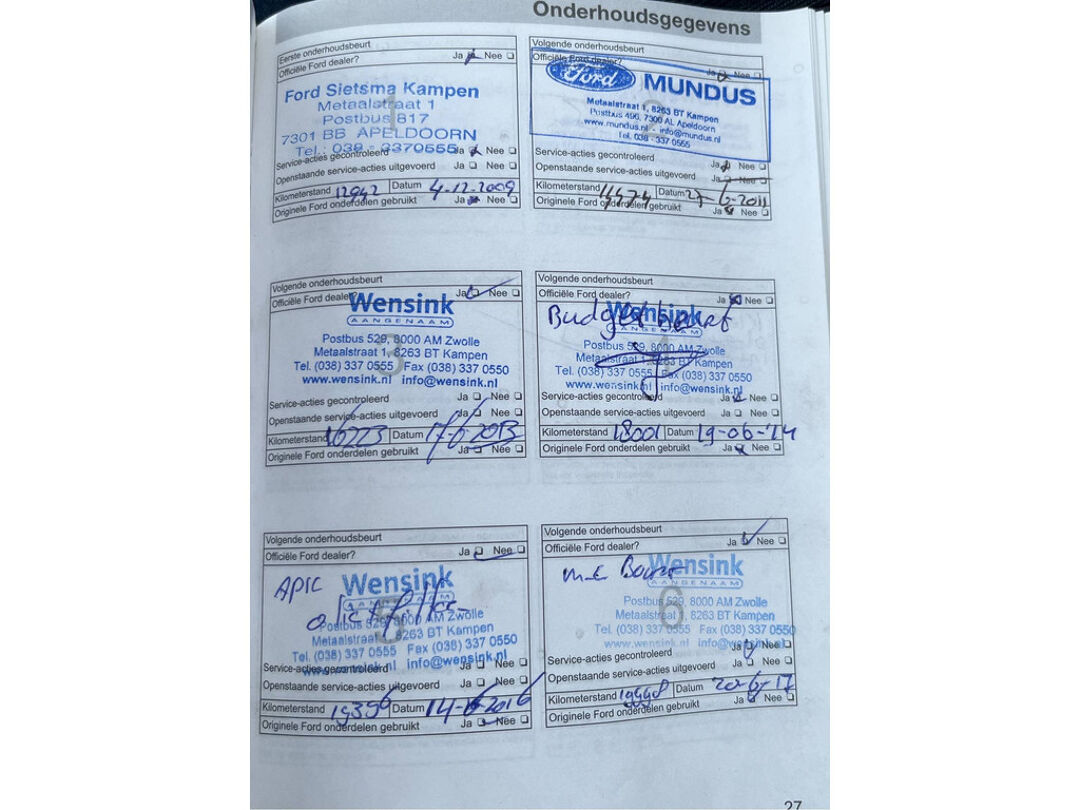 Onderhoudsgegevens
Eerste onderhoudsbeurt
Officiële Ford dealer? Ja Nee
Ford Sietsma Kampen
Metaalstraat 1
Postbus 817
7301 BB APELDOORN
Tel.: 038 - 3370555
Service-acties gecontroleerd Ja Nee
Openstaande service-acties uitgevoerd Ja Nee
Kilometerstand 12942 Datum 4-12-2009
Originele Ford onderdelen gebruikt Ja Nee
Volgende onderhoudsbeurt
Officiële Ford dealer? Ja Nee
Ford MUNDUS
2
Metaalstraat 1, 8263 BT Kampen
Postbus 496, 7300 AL Apeldoorn
www.mundus.nl - info@mundus.nl
Tel. 038 - 337 0555
Service-acties gecontroleerd Ja Nee
Openstaande service-acties uitgevoerd Ja Nee
Kilometerstand Datum 27-6-2011
Originele Ford onderdelen gebruikt Ja Nee
Volgende onderhoudsbeurt
Officiële Ford dealer? Ja Nee
Wensink
AANGENAAM
3
Postbus 529, 8000 AM Zwolle
Metaalstraat 1, 8263 BT Kampen
Tel. (038) 337 0555 Fax (038) 337 0550
www.wensink.nl info@wensink.nl
Service-acties gecontroleerd Ja Nee
Openstaande service-acties uitgevoerd Ja Nee
Kilometerstand 16223 Datum 17-6-2013
Originele Ford onderdelen gebruikt Ja Nee
Volgende onderhoudsbeurt
Officiële Ford dealer? Ja Nee
Budget beurt
Wensink
AANGENAAM
4
Postbus 529, 8000 AM Zwolle
Metaalstraat 1, 8263 BT Kampen
Tel. (038) 337 0555 Fax (038) 337 0550
www.wensink.nl info@wensink.nl
Service-acties gecontroleerd Ja Nee
Openstaande service-acties uitgevoerd Ja Nee
Kilometerstand 18001 Datum 19-06-'14
Originele Ford onderdelen gebruikt Ja Nee
Volgende onderhoudsbeurt
Officiële Ford dealer? Ja Nee
APK Wensink
AANGENAAM
5
Postbus 529, 8000 AM Zwolle
Metaalstraat 1, 8263 BT Kampen
Tel. (038) 337 0555 Fax (038) 337 0550
www.wensink.nl info@wensink.nl
Service-acties gecontroleerd Ja Nee
Openstaande service-acties uitgevoerd Ja Nee
Kilometerstand 19396 Datum 14-6-2016
Originele Ford onderdelen gebruikt Ja Nee
Volgende onderhoudsbeurt
Officiële Ford dealer? Ja Nee
Wensink
AANGENAAM
6
Postbus 529, 8000 AM Zwolle
Metaalstraat 1, 8263 BT Kampen
Tel. (038) 337 0555 Fax (038) 337 0550
www.wensink.nl info@wensink.nl
Service-acties gecontroleerd Ja Nee
Openstaande service-acties uitgevoerd Ja Nee
Kilometerstand 19998 Datum 20-6-17
Originele Ford onderdelen gebruikt Ja Nee
27